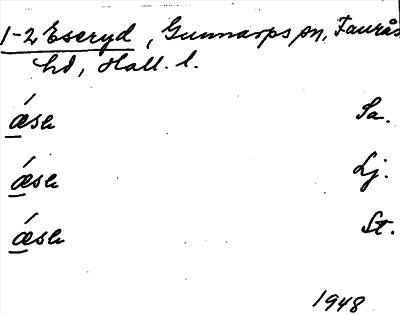 1-2 Eseryd, Gunnarps sn, Faurås
hd, Hall. l.
ǽsh Sa.
ǽsh Lj.
ǽsh St.
1948